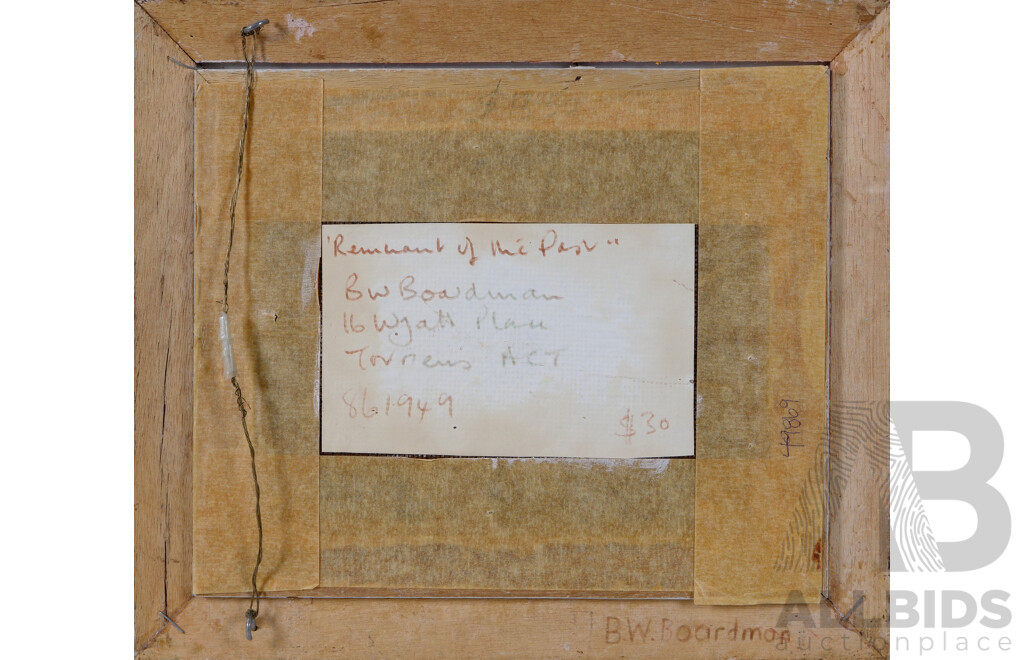 'Remnant of the Past"
BW Boardman
16 Wyatt Place
Torrens ACT
861949
$30
49869
B.W. Boardman
AB
ALLBIDS
auctionplace